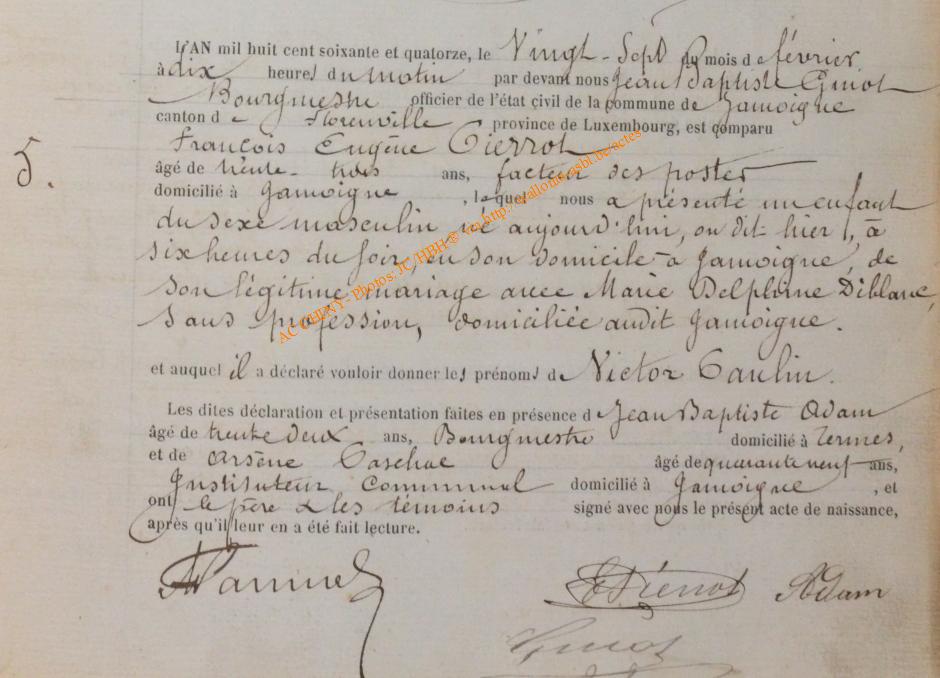 L'AN mil huit cent soixante et quatorze, le Vingt-Sept du mois de février
à dix heures du matin par devant nous Jean Baptiste Guiot
Bourgmestre officier de l'état civil de la commune de Jamoigne
canton de Florenville province de Luxembourg, est comparu
François Eugène Pierrot
5.
âgé de trente-trois ans, facteur des postes
domicilié à Jamoigne, lequel nous a présenté un enfant
du sexe masculin né aujourd'hui, on dit hier, à
six heures du soir, en son domicile à Jamoigne, de
son légitime mariage avec Marie Delphine Diblanc,
sans profession, domiciliée audit Jamoigne.
et auquel il a déclaré vouloir donner les prénoms de Victor Paulin.
Les dites déclaration et présentation faites en présence de Jean Baptiste Adam
âgé de trente deux ans, Bourgmestre domicilié à Termes,
et de Arsène âgé de quarante neuf ans,
Instituteur Communal domicilié à Jamoigne, et
ont le père & les témoins signé avec nous le présent acte de naissance,
après qu'il leur en a été fait lecture.
Adam
Guiot
AC CHINY - Photos: JC/HBH © via http://etallomn.asbl.be/actes